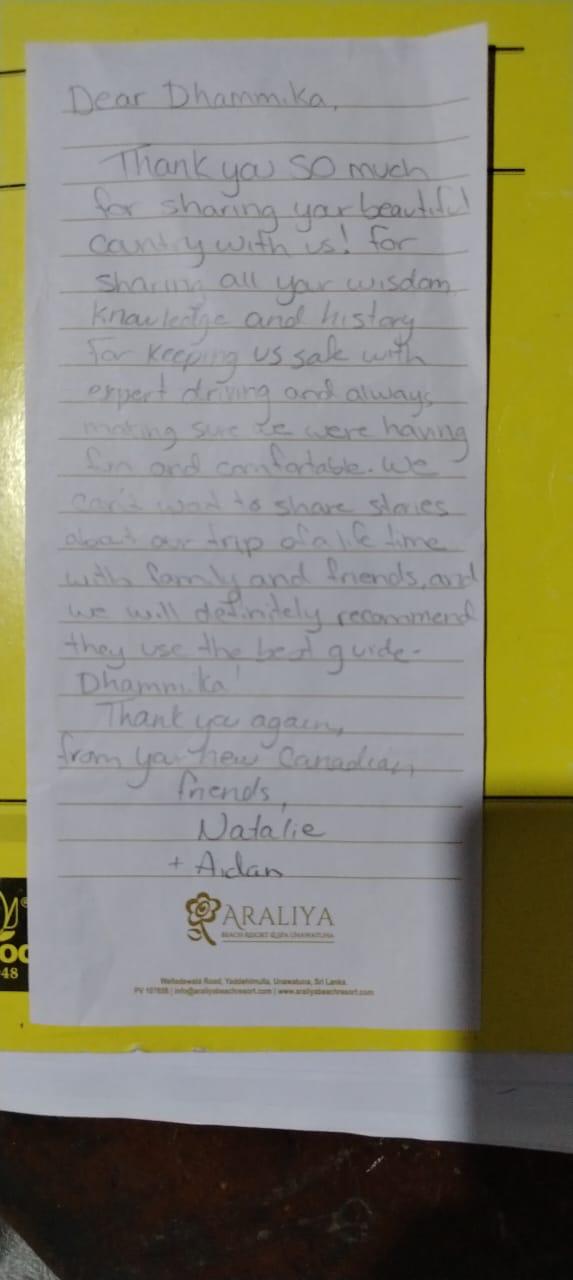 Dear Dhammika,
Thank you so much
for sharing your beautiful
country with us! for
sharing all your wisdom,
knowledge and history
for keeping us safe with
expert driving and always
making sure we were having
fun and comfortable. We
can't wait to share stories
about our trip of a life time
with family and friends, and
we will definitely recommend
they use the best guide-
Dhammika!
Thank you again,
from your new Canadian
friends,
Natalie
+ Aidan
ARALIYA
BEACH RESORT & SPA UNAWATUNA
Welladewala Road, Yaddehimulla, Unawatuna, Sri Lanka.
info@araliyabeachresort.com | www.araliyabeachresort.com
48